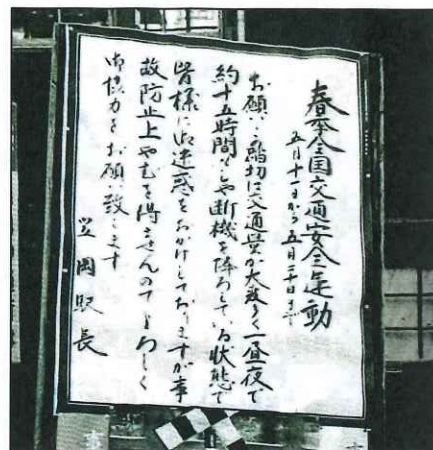 春季全国交通安全運動
五月十一日から五月二十日まで
お願い、踏切は交通量が大変多く一昼夜で
約十五時間も遮断機を降ろしている状態で
皆様に御迷惑をおかけしておりますが事
故防止上やむを得ませんのでよろしく
御協力をお願い致します
笠岡駅長